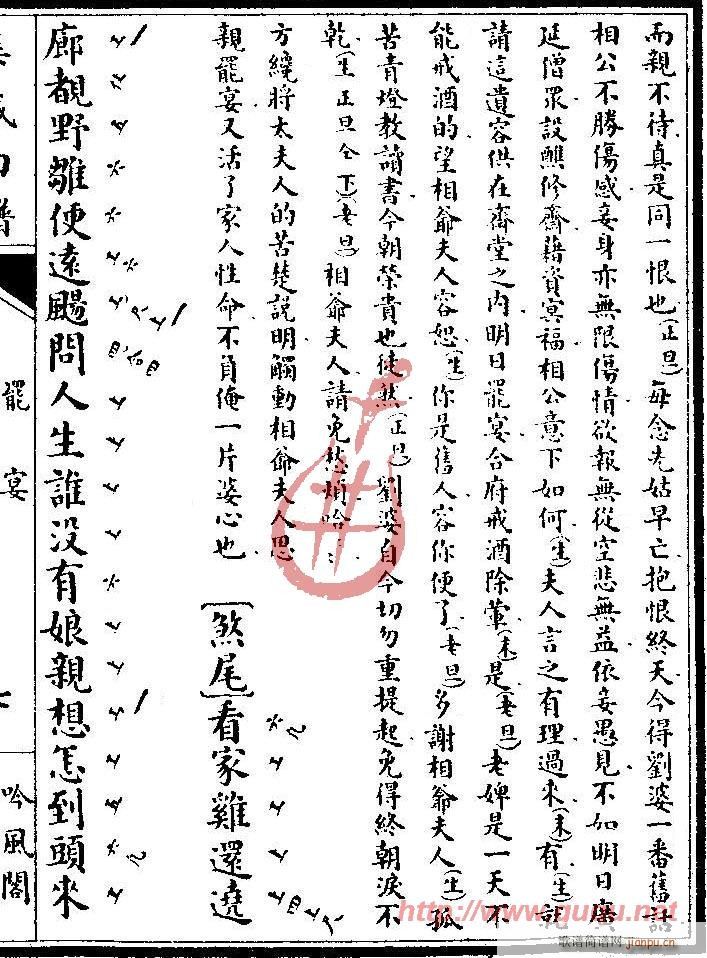 而親不待真是同一恨也(正旦)每念先姑早亡抱恨終天今得劉婆一番舊話
相公不勝傷感妾身亦無限傷情欲報無從空悲無益依妾愚見不如明日廣
延僧眾設醮修齋藉資冥福相公意下如何(生)夫人言之有理過來(末)有(生)
請這遺容供在齋堂之內明日罷宴合府戒酒除葷(末)是(老旦)老婢是一天不
能戒酒的望相爺夫人容恕(生)你是舊人容你便了(老旦)多謝相爺夫人(生)孤
苦青燈教讀書今朝榮貴也徒然(正旦)劉婆自今切勿重提起免得終朝淚不
乾(生正旦仝下)(老旦)相爺夫人請免愁煩
方纔將太夫人的苦楚說明觸動相爺夫人思
親罷宴又活了家人性命不負俺一片婆心也
[煞尾]看家雞還遶
廊覩野雛便遠颺問人生誰沒有娘親想怎到頭來
罷宴
吟風閣
http://www.qupu.net
歌谱简谱网
jianpu.cn